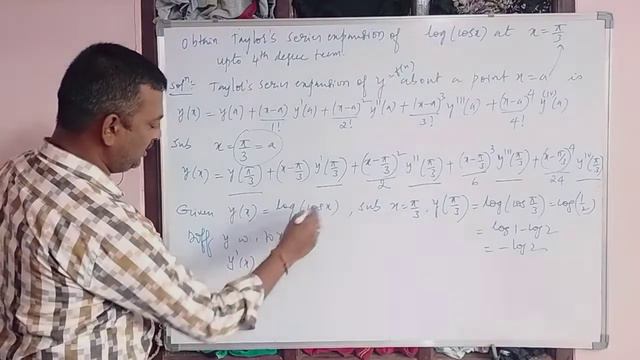 Obtain Taylor's series expansion of log(cosx) at x = π/3
upto 4th degree term
Solⁿ: Taylor's series expansion of y = f(x) about a point x = a is
y(x) = y(a) + (x-a)/1! y'(a) + (x-a)²/2! y''(a) + (x-a)³/3! y'''(a) + (x-a)⁴/4! y⁽ⁱᵛ⁾(a)
Sub x = π/3 = a
y(x) = y(π/3) + (x-π/3) y'(π/3) + (x-π/3)²/2 y''(π/3) + (x-π/3)³/6 y'''(π/3) + (x-π/3)⁴/24 yⁱᵛ(π/3)
Given y(x) = log(cosx), sub x = π/3, y(π/3) = log(cos π/3) = log(1/2)
= log1 - log2
= -log2
Diff y w.
y'(x)